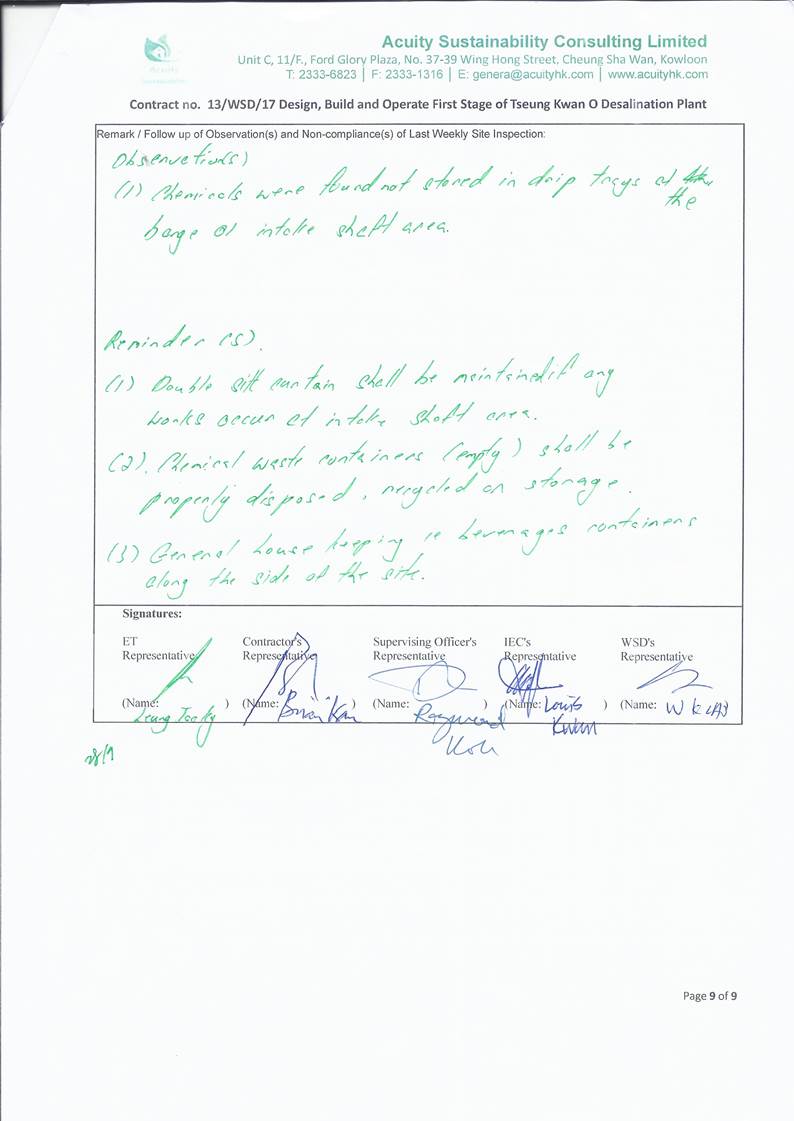 Acuity
Acuity Sustainability Consulting Limited
Unit C, 11/F., Ford Glory Plaza, No. 37-39 Wing Hong Street, Cheung Sha Wan, Kowloon
T: 2333-6823 | F: 2333-1316 | E: genera@acuityhk.com | www.acuityhk.com
Contract no. 13/WSD/17 Design, Build and Operate First Stage of Tseung Kwan O Desalination Plant
Remark / Follow up of Observation(s) and Non-compliance(s) of Last Weekly Site Inspection:
Observation(s)
(1) Chemicals were found not stored in drip trays at the
barge of intake shaft area.
Reminder (s).
(1) Double silt curtain shall be maintained if any
works occur at intake shaft area.
(2). Chemical waste containers (empty) shall be
properly disposed, recycled or storage.
(3) General house keeping ie beverages containers
along the side of the site.
Signatures:
ET Representative
Contractor's Representative
Supervising Officer's Representative
IEC's Representative
WSD's Representative
(Name: Leung )
(Name: Brian Kan )
(Name: Raymond Koh )
(Name: Louis Kwan )
(Name: W K
28/9
Page 9 of 9